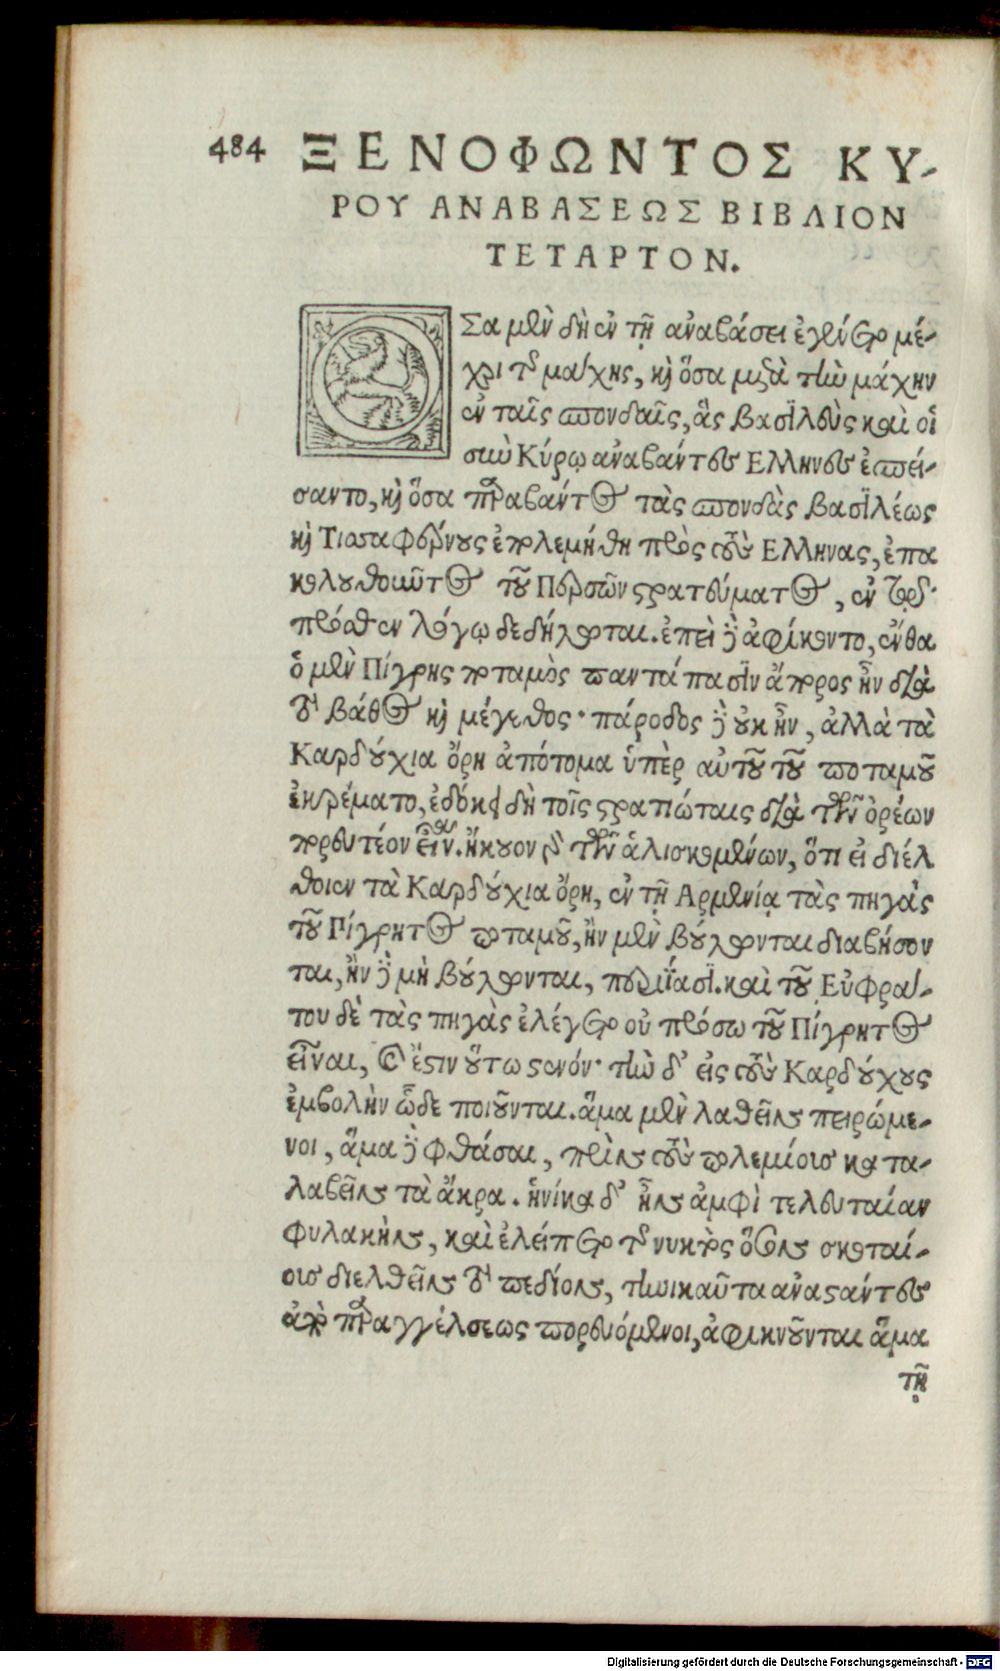 484 ΞΕΝΟΦΩΝΤΟΣ ΚΥ-
ΡΟΥ ΑΝΑΒΑΣΕΩΣ ΒΙΒΛΙΟΝ
ΤΕΤΑΡΤΟΝ.
ΟΣα μὲν δὴ ἐν τῇ ἀναβάσει ἐγένετο μέ-
χρι τῆς μάχης, καὶ ὅσα μετὰ τὴν μάχην
ἐν ταῖς σπονδαῖς, ἃς βασιλεὺς καὶ οἱ
σὺν Κύρῳ ἀναβάντες Ελληνες ἐσπεί-
σαντο, καὶ ὅσα παραβάντος τὰς σπονδὰς βασιλέως
καὶ Τισσαφέρνους ἐπολεμήθη πρὸς τοὺς Ελληνας, ἐπα
κολουθοῦντος τοῦ Περσῶν στρατεύματος, ἐν τῷ
πρόσθεν λόγῳ δεδήλωται. ἐπεὶ δὲ ἀφίκοντο, ἔνθα
ὁ μὲν Πίγρης ποταμὸς παντάπασιν ἄπορος ἦν διὰ
τὸ βάθος καὶ μέγεθος· πάροδος δὲ οὐκ ἦν, ἀλλὰ τὰ
Καρδούχια ὄρη ἀπότομα ὑπὲρ αὐτοῦ τοῦ ποταμοῦ
ἐκρέματο, ἐδόκει δὴ τοῖς στρατιώταις διὰ τῶν ὀρέων
πορευτέον εἶναι. ἤκουον γὰρ τῶν ἁλισκομένων, ὅτι εἰ διέλ
θοιεν τὰ Καρδούχια ὄρη, ἐν τῇ Αρμενίᾳ τὰς πηγὰς
τοῦ Πίγρητος ποταμοῦ, ἢν μὲν βούλωνται διαβήσον
ται, ἢν δὲ μὴ βούλωνται, περιίασι. καὶ τοῦ Εὐφρά-
του δὲ τὰς πηγὰς ἐλέγετο οὐ πρόσω τοῦ Πίγρητος
εἶναι, καὶ ἔστιν οὕτω στενόν· τὴν δ' εἰς τοὺς Καρδούχους
ἐμβολὴν ὧδε ποιοῦνται. ἅμα μὲν λαθεῖν πειρώμε-
νοι, ἅμα δὲ φθάσαι, πρὶν τοὺς πολεμίους κατα-
λαβεῖν τὰ ἄκρα. ἡνίκα δ' ἦν ἀμφὶ τελευταίαν
φυλακὴν, καὶ ἐλείπετο τῆς νυκτὸς ὅσον σκοταί-
ους διελθεῖν τὸ πεδίον, τηνικαῦτα ἀναστάντες
ἀπὸ παραγγέλσεως πορευόμενοι, ἀφικνοῦνται ἅμα
τῇ
Digitalisierung gefördert durch die Deutsche Forschungsgemeinschaft - DFG